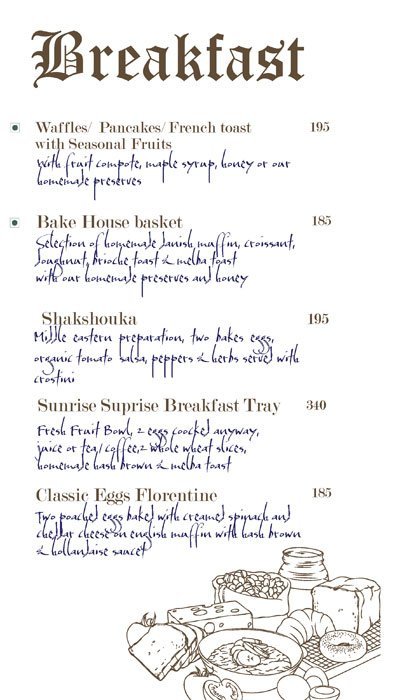 Breakfast
Waffles/ Pancakes/ French toast 195
with Seasonal Fruits
with fruit compote, maple syrup, honey or our
homemade preserves
Bake House basket 185
Selection of homemade danish, muffin, croissant,
doughnut, brioche toast & melba toast
with our homemade preserves and honey
Shakshouka 195
Middle eastern preparation, two bakes eggs,
organic tomato salsa, peppers & herbs served with
crostini
Sunrise Suprise Breakfast Tray 340
Fresh Fruit Bowl, 2 eggs coocked anyway,
juice or tea/coffee,2 whole wheat slices,
homemade hash brown & melba toast
Classic Eggs Florentine 185
Two poached eggs baked with creamed spinach and
cheddar cheese on english muffin with hash brown
& hollandaise saucet